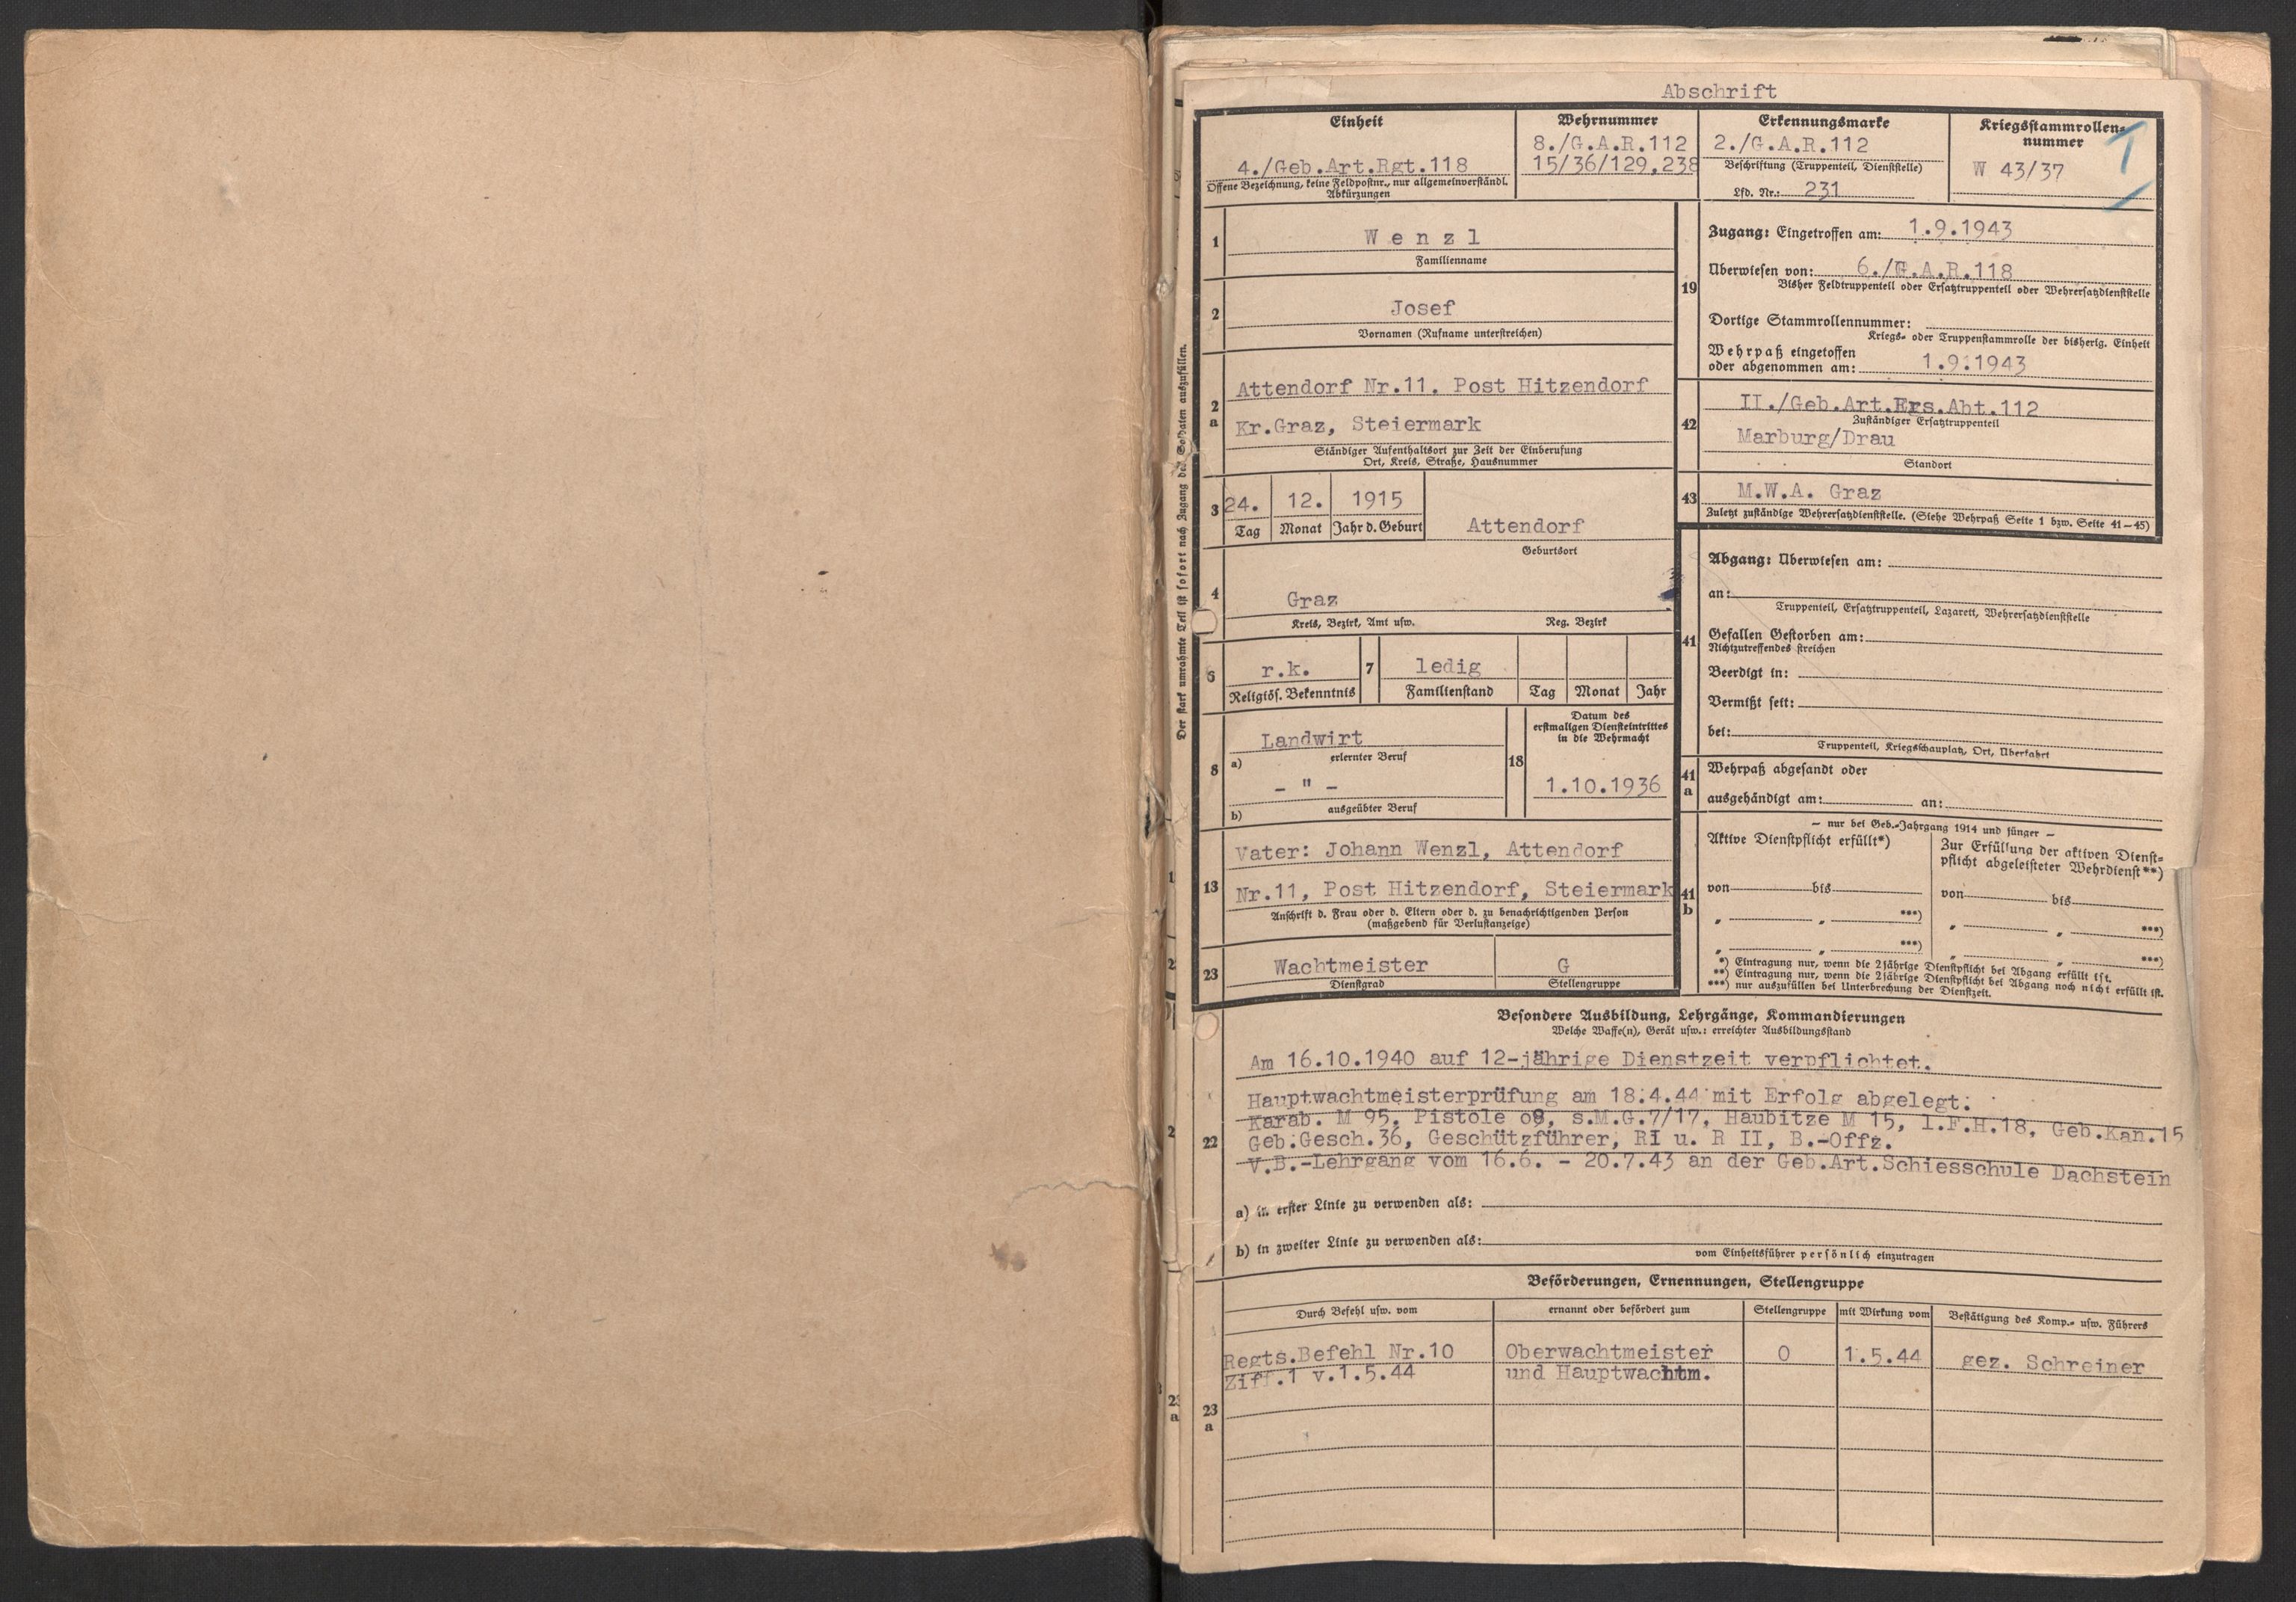 Abschrift
Einheit
4./Geb.Art.Rgt.118
Offene Bezeichnung, keine Feldpostnr., nur allgemeinverständl.
Abkürzungen
Wehrnummer
8./G.A.R.112
15/36/129,238
Erkennungsmarke
2./G.A.R.112
Beschriftung (Truppenteil, Dienststelle)
Lfd. Nr.: 231
Kriegsstammrollen-
nummer
W 43/37
Der stark umrahmte Teil ist sofort nach Zugang des Soldaten auszufüllen.
1
Wenzl
Familienname
2
Josef
Vornamen (Rufname unterstreichen)
2
a
Attendorf Nr.11. Post Hitzendorf
Kr.Graz, Steiermark
Ständiger Aufenthaltsort zur Zeit der Einberufung
Ort, Kreis, Straße, Hausnummer
3
24. 12. 1915
Tag Monat Jahr d. Geburt
Attendorf
Geburtsort
4
Graz
Kreis, Bezirk, Amt usw. Reg. Bezirk
6
r.k.
Religiös. Bekenntnis
7
ledig
Familienstand Tag Monat Jahr
8
Landwirt
a) erlernter Beruf
- " -
b) ausgeübter Beruf
18
Datum des
erstmaligen Diensteintrittes
in die Wehrmacht
1.10.1936
13
Vater: Johann Wenzl, Attendorf
Nr.11, Post Hitzendorf, Steiermark
Anschrift d. Frau oder d. Eltern oder d. zu benachrichtigenden Person
(maßgebend für Verlustanzeige)
23
Wachtmeister G
Dienstgrad Stellengruppe
19
Zugang: Eingetroffen am: 1.9.1943
Überwiesen von: 6./G.A.R.118
Bisher Feldtruppenteil oder Ersatztruppenteil oder Wehrersatzdienststelle
Dortige Stammrollennummer:
Kriegs- oder Truppenstammrolle der bisherig. Einheit
Wehrpaß eingetoffen
oder abgenommen am: 1.9.1943
42
II./Geb.Art.Ers.Abt.112
Zuständiger Ersatztruppenteil
Marburg/Drau
Standort
43
M.W.A. Graz
Zuletzt zuständige Wehrersatzdienststelle. (Siehe Wehrpaß Seite 1 bzw. Seite 41-45)
41
Abgang: Überwiesen am:
an:
Truppenteil, Ersatztruppenteil, Lazarett, Wehrersatzdienststelle
Gefallen Gestorben am:
Nichtzutreffendes streichen
Beerdigt in:
Vermißt seit:
bei:
Truppenteil, Kriegsschauplatz, Ort, Überfahrt
41
a
Wehrpaß abgesandt oder
ausgehändigt am: an:
41
b
- nur bei Geb.-Jahrgang 1914 und jünger -
Aktive Dienstpflicht erfüllt*)
von bis
" " ***)
" " ***)
Zur Erfüllung der aktiven Dienst-
pflicht abgeleisteter Wehrdienst**)
von bis
" " ***)
" " ***)
*) Eintragung nur, wenn die 2jährige Dienstpflicht bei Abgang erfüllt ist.
**) Eintragung nur, wenn die 2jährige Dienstpflicht bei Abgang noch nicht erfüllt ist.
***) nur auszufüllen bei Unterbrechung der Dienstzeit.
Besondere Ausbildung, Lehrgänge, Kommandierungen
Welche Waffe(n), Gerät usw.: erreichter Ausbildungsstand
22
Am 16.10.1940 auf 12-jährige Dienstzeit verpflichtet.
Hauptwachtmeisterprüfung am 18.4.44 mit Erfolg abgelegt.
Karab. M 95, Pistole o8, s.M.G.7/17, Haubitze M 15, l.F.H.18, Geb.Kan.15
Geb.Gesch.36, Geschützführer, RI u. R II, B.-Offz.
V.B.-Lehrgang vom 16.6. - 20.7.43 an der Geb.Art.Schiesschule Dachstein
a) in erster Linie zu verwenden als:
b) in zweiter Linie zu verwenden als:
vom Einheitsführer persönlich einzutragen
Beförderungen, Ernennungen, Stellengruppe
Durch Befehl usw. vom ernannt oder befördert zum Stellengruppe mit Wirkung vom Bestätigung des Komp.- usw. Führers
23
a
Regts.Befehl Nr.10 Oberwachtmeister O 1.5.44 gez. Schreiner
Ziff.1 v.1.5.44 und Hauptwachtm.